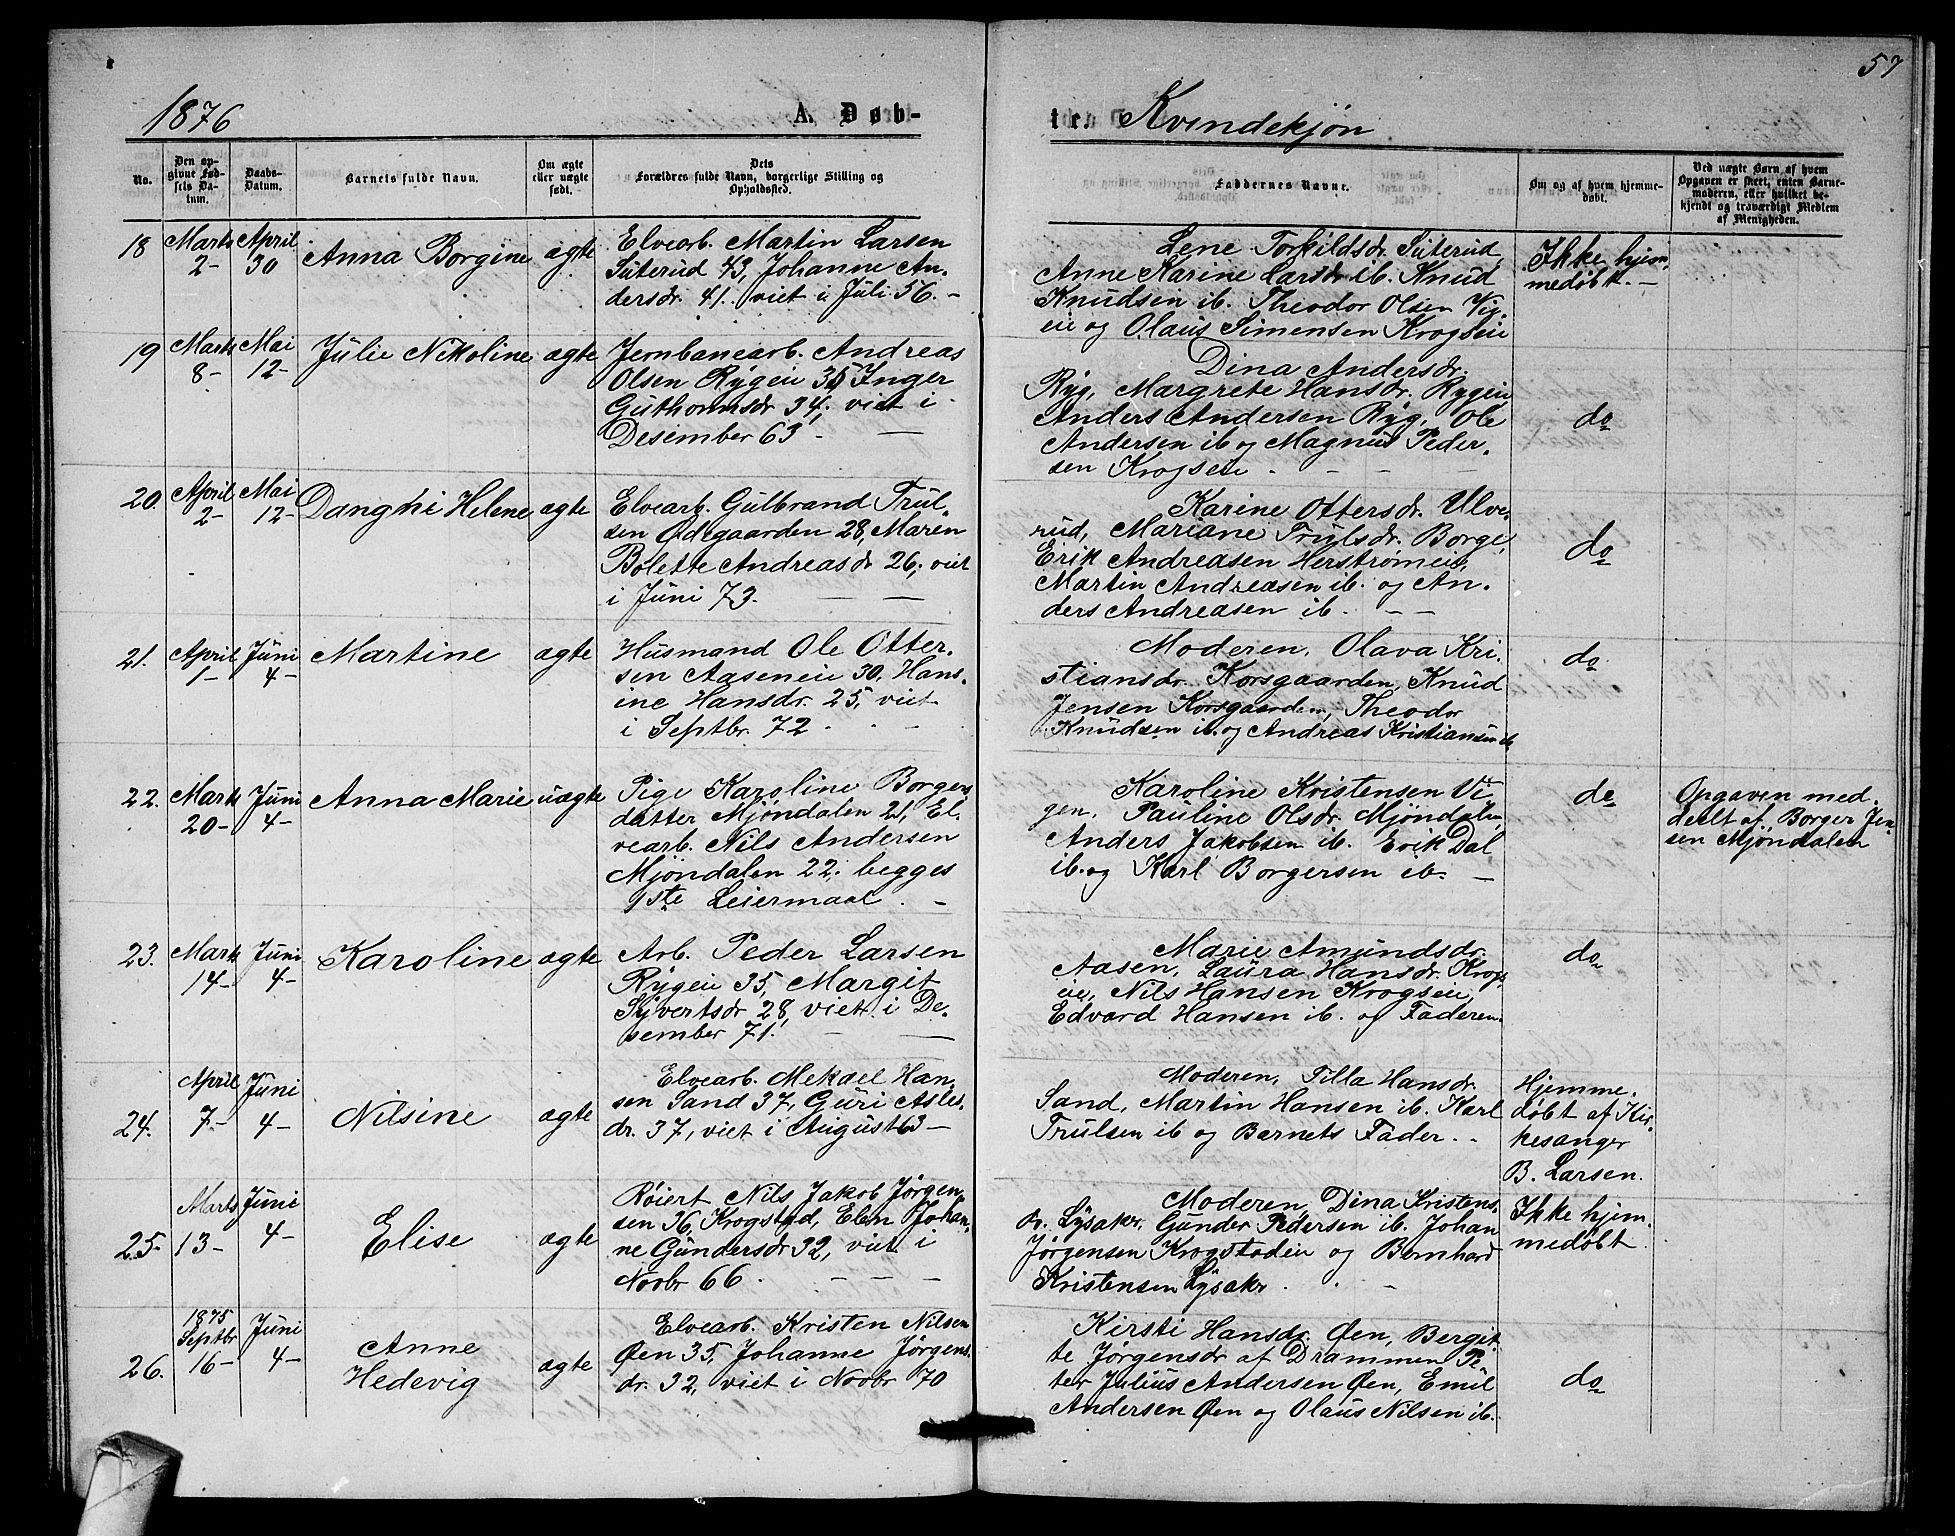 57
1876
A. Døb-
te. Kvindekjøn
No.
Den op-
givne Fød-
sels Da-
tum.
Daabs-
Datum.
Barnets fulde Navn.
Om ægte
eller uægte
født.
Dets
Forældres fulde Navn, borgerlige Stilling og
Opholdssted.
Faddernes Navne.
Om og af hvem hjemme-
døbt.
Ved uægte Børn af hvem
Opgaven er skeet, enten Barne-
moderen, eller hvilket be-
kjendt og troværdigt Medlem
af Menigheden.
18 Marts 2- April 30 Anna Borgine ægte
Elvearb. Martin Larsen
Süterud 43, Johanne An-
dersdr. 41. viet i Juli 56. -
Lene Torkildsdr. Süterud,
Anne Karine Larsdr ib. Knud
Knudsen ib. Theodor Olsen Vig-
eie og Olaus Simensen Krogseie
Ikke hjem-
medøbt. -
19 Marts 8- Mai 12- Julie Nikoline ægte
Jernbanearb. Andreas
Olsen Rygeie 35 Inger
Guthormsdr 34, viet i
Desember 63 -
Dina Andersdr.
Ryg, Margrete Hansdr. Rygeie
Anders Andersen Ryg, Ole
Andersen ib og Magnus Peder-
sen Krogseie
do
20. April 2- Mai 12- Danghi Helene ægte
Elvearb. Gulbrand Trul-
sen Ødegaarden 28, Maren
Bolette Andreasdr 26, viet
i Juni 73.
Karine Ottersdr. Ulve-
rud, Mariane Trulsdr. Borge,
Erik Andreasen Herstrømeie,
Martin Andreasen ib. og An-
ders Andreasen ib.
do
21. April 1- Juni 4- Martine ægte
Husmand Ole Otter-
sen Aaseneie 30, Hans-
ine Hansdr. 25, viet
i Septbr. 72
Moderen, Olava Kri-
stiansdr. Korsgaarden, Knud
Jensen Korsgaarden, Theodor
Knudsen ib. og Andreas Kristiansen ib
do
22. Marts 20- Juni 4- Anna Marie uægte
Pige Karoline Borgers-
datter Mjöndalen 21, El-
vearb. Nils Andersen
Mjöndalen 22, begges
1ste Leiermaal.
Karoline Kristensen Vi-
gen, Pauline Olsdr. Mjöndalen,
Anders Jakobsen ib. Erik Dal
ib. og Karl Borgersen ib.
do
Opgaven med-
deelt af Borger Jen-
sen Mjöndalen
23. Marts 14- Juni 4- Karoline ægte
Arb. Peder Larsen
Rygeie 35, Margit
Syvertsdr 28, viet i De-
sember 71.
Marie Amundsdr.
Aasen, Laura Hansdr. Krogs-
eie, Nils Hansen Krogseie,
Edvard Hansen ib. og Faderen.
do
24. April 7- Juni 4- Nilsine ægte
Elvearb. Mekael Han-
sen Sand 37, Guri Asles-
dr. 37, viet i August 63 -
Moderen, Tilla Hansdr.
Sand, Martin Hansen ib. Karl
Trulsen ib og Barnets Fader.
Hjemme-
døbt af Kir-
kesanger
B. Larsen.
25. Marts 13- Juni 4- Elise ægte
Røiert Nils Jakob Jørgen-
sen 36, Krogstad, Elen Johan-
ne Gundersdr 32, viet i
Novbr 66.
Moderen, Dina Kristens-
dr. Lysaker, Gunder Pedersen ib. Johan
Jørgensen Krogstadeie og Bernhard
Kristensen Lysaker.
Ikke hjem-
medøbt.
26. 1875 Septbr 16- Juni 4- Anne
Hedevig ægte
Elvearb. Kristen Nilsen
Øen 35, Johanne Jørgens-
dr. 32, viet i Novbr 70
Kirsti Hansdr. Øen, Bergit-
te Jørgensdr af Drammen, Pe-
ter Julius Andersen Øen, Emil
Andersen Øen og Olaus Nilsen ib.
do